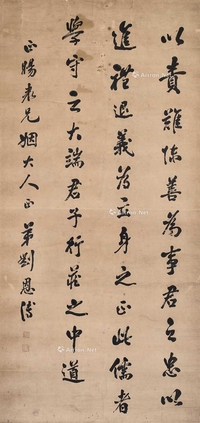 以責難陳善為事君之忠以
進禮退義為立身之正此儒者
學守之大端君子行藏之中道
表兄姻大人正 弟劉恩溥